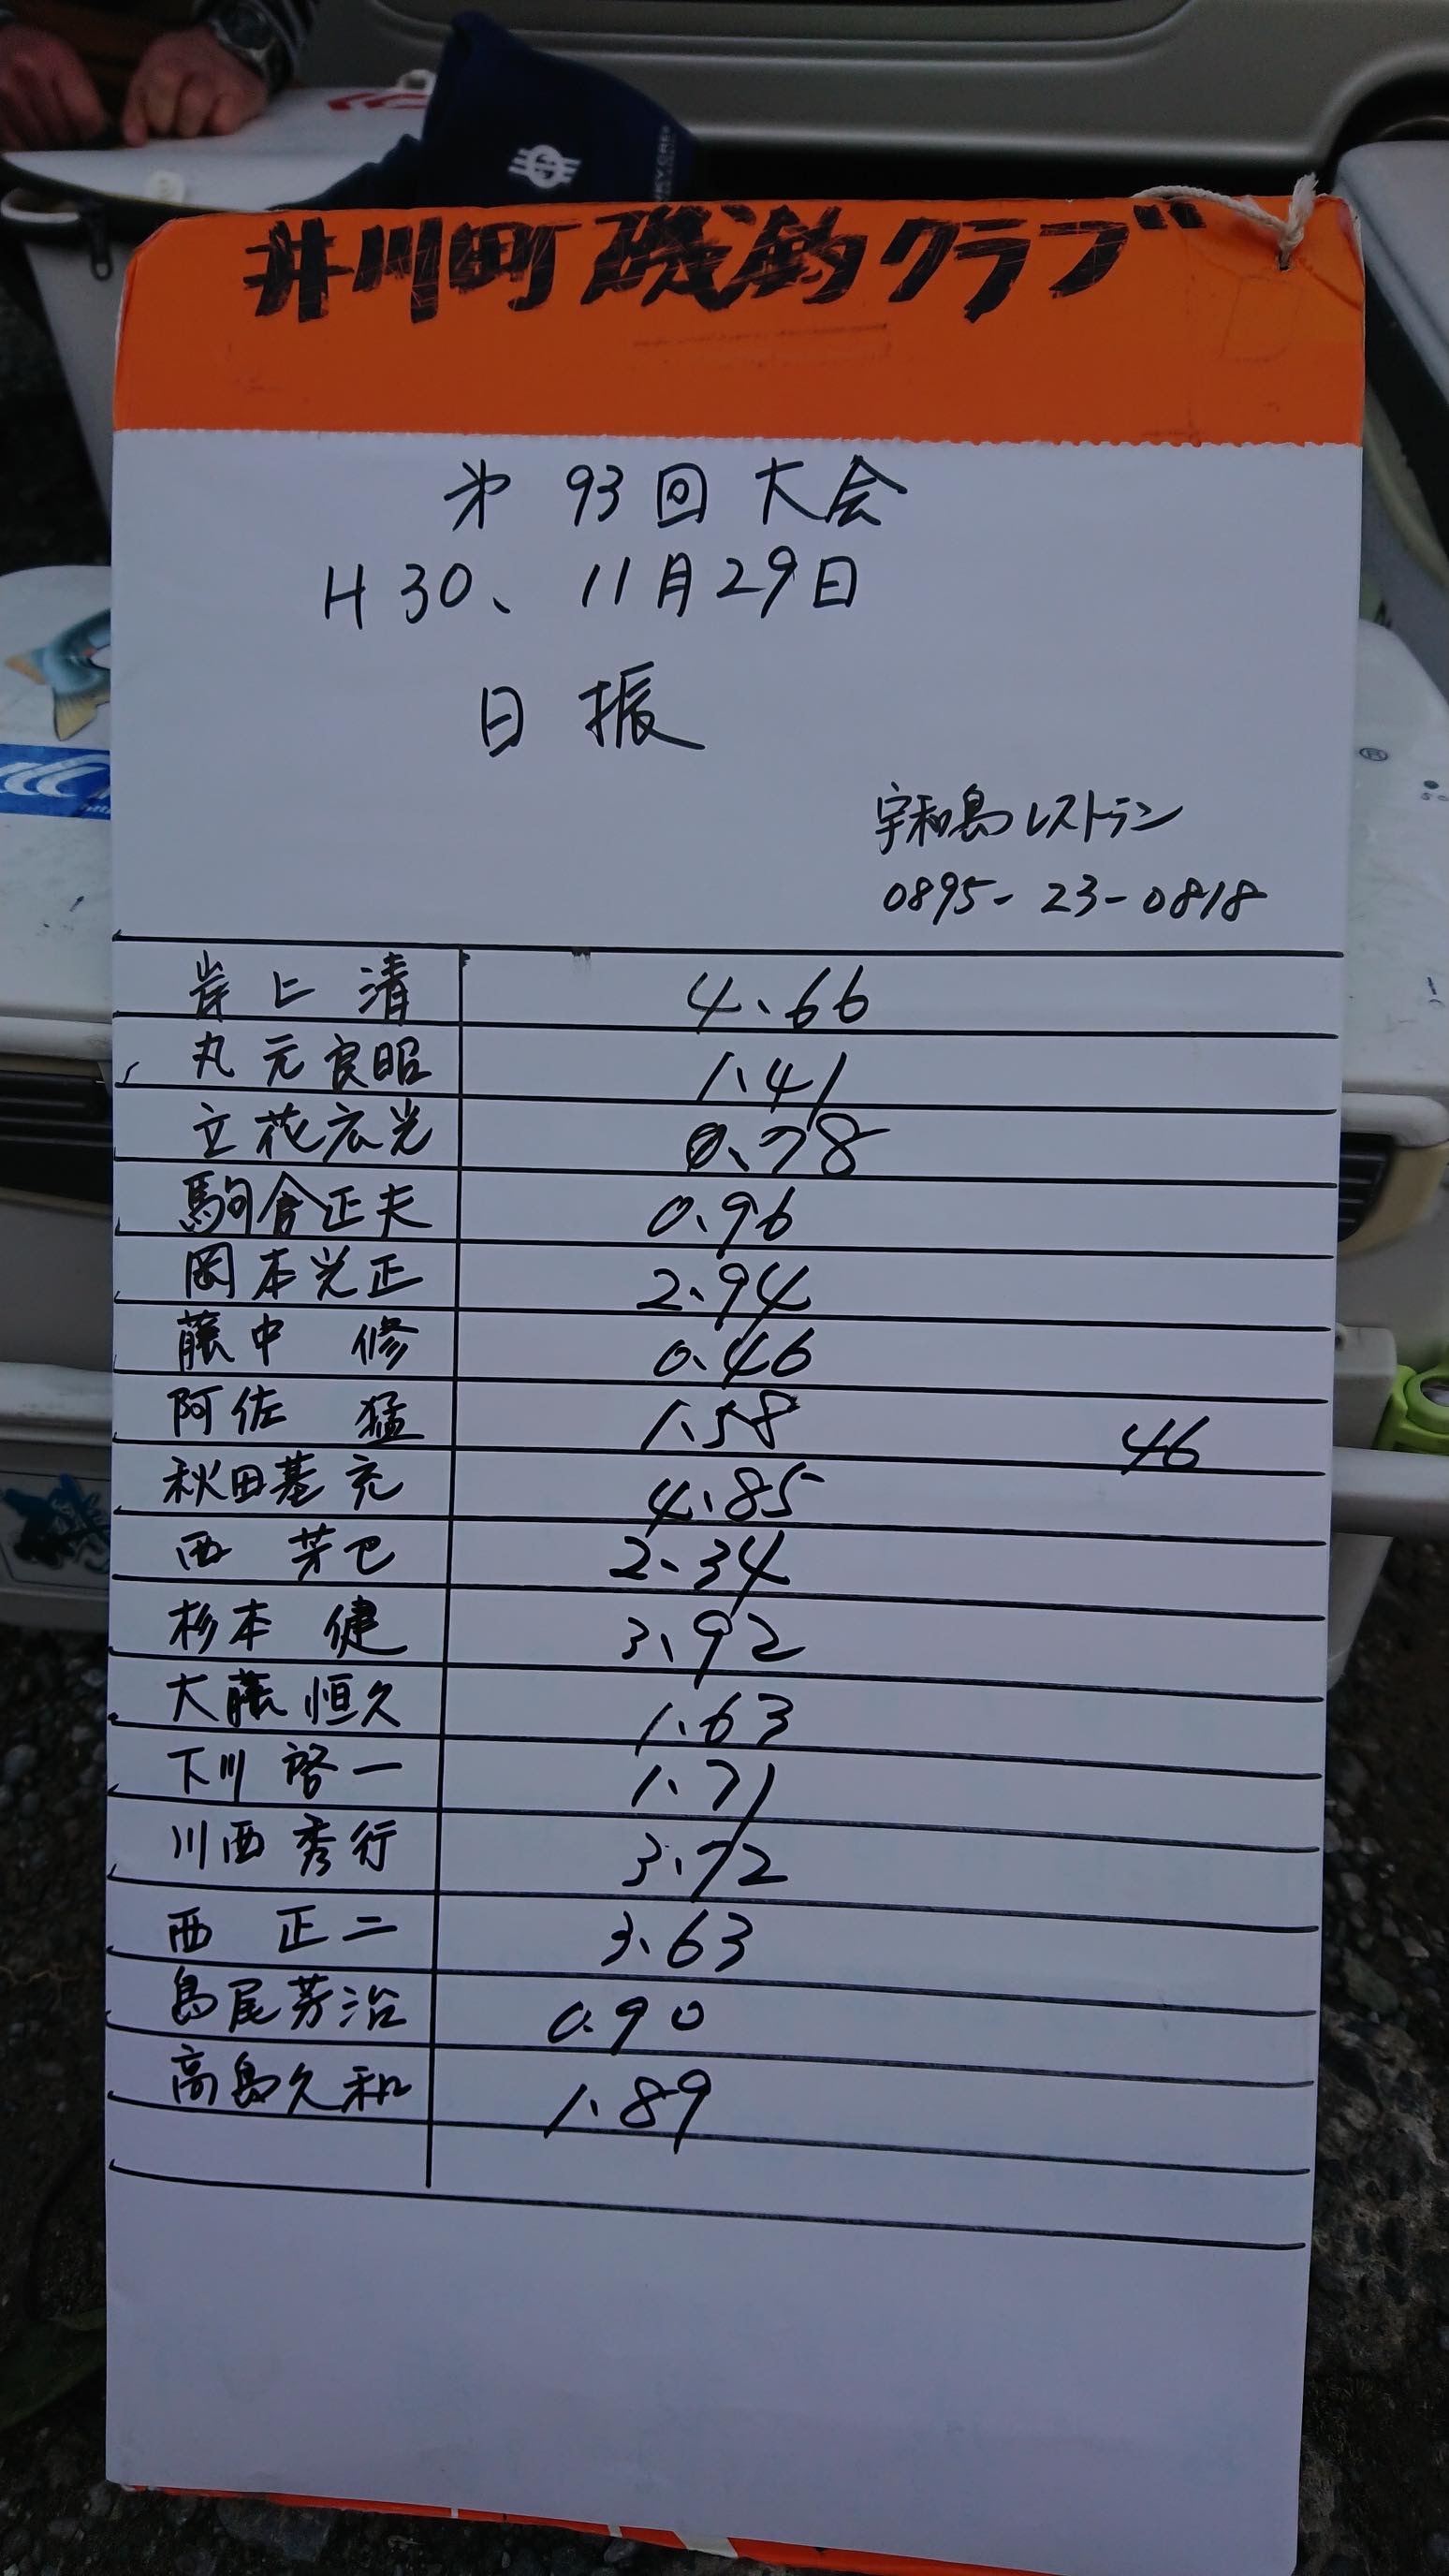 井川町磯釣クラブ
第93回大会
H30、11月29日
日振
宇和島レストラン
0895-23-0818
岸上 清 4.66
丸元良昭 1.41
立花広光 0.78
駒倉正夫 0.96
岡本光正 2.94
藤中 修 0.46
阿佐 猛 1.58 46
秋田基充 4.85
西 芳巳 2.34
杉本 健 3.92
大藤恒久 1.63
下川啓一 1.71
川西秀行 3.72
西 正二 3.63
島尾芳治 0.90
高島久和 1.89